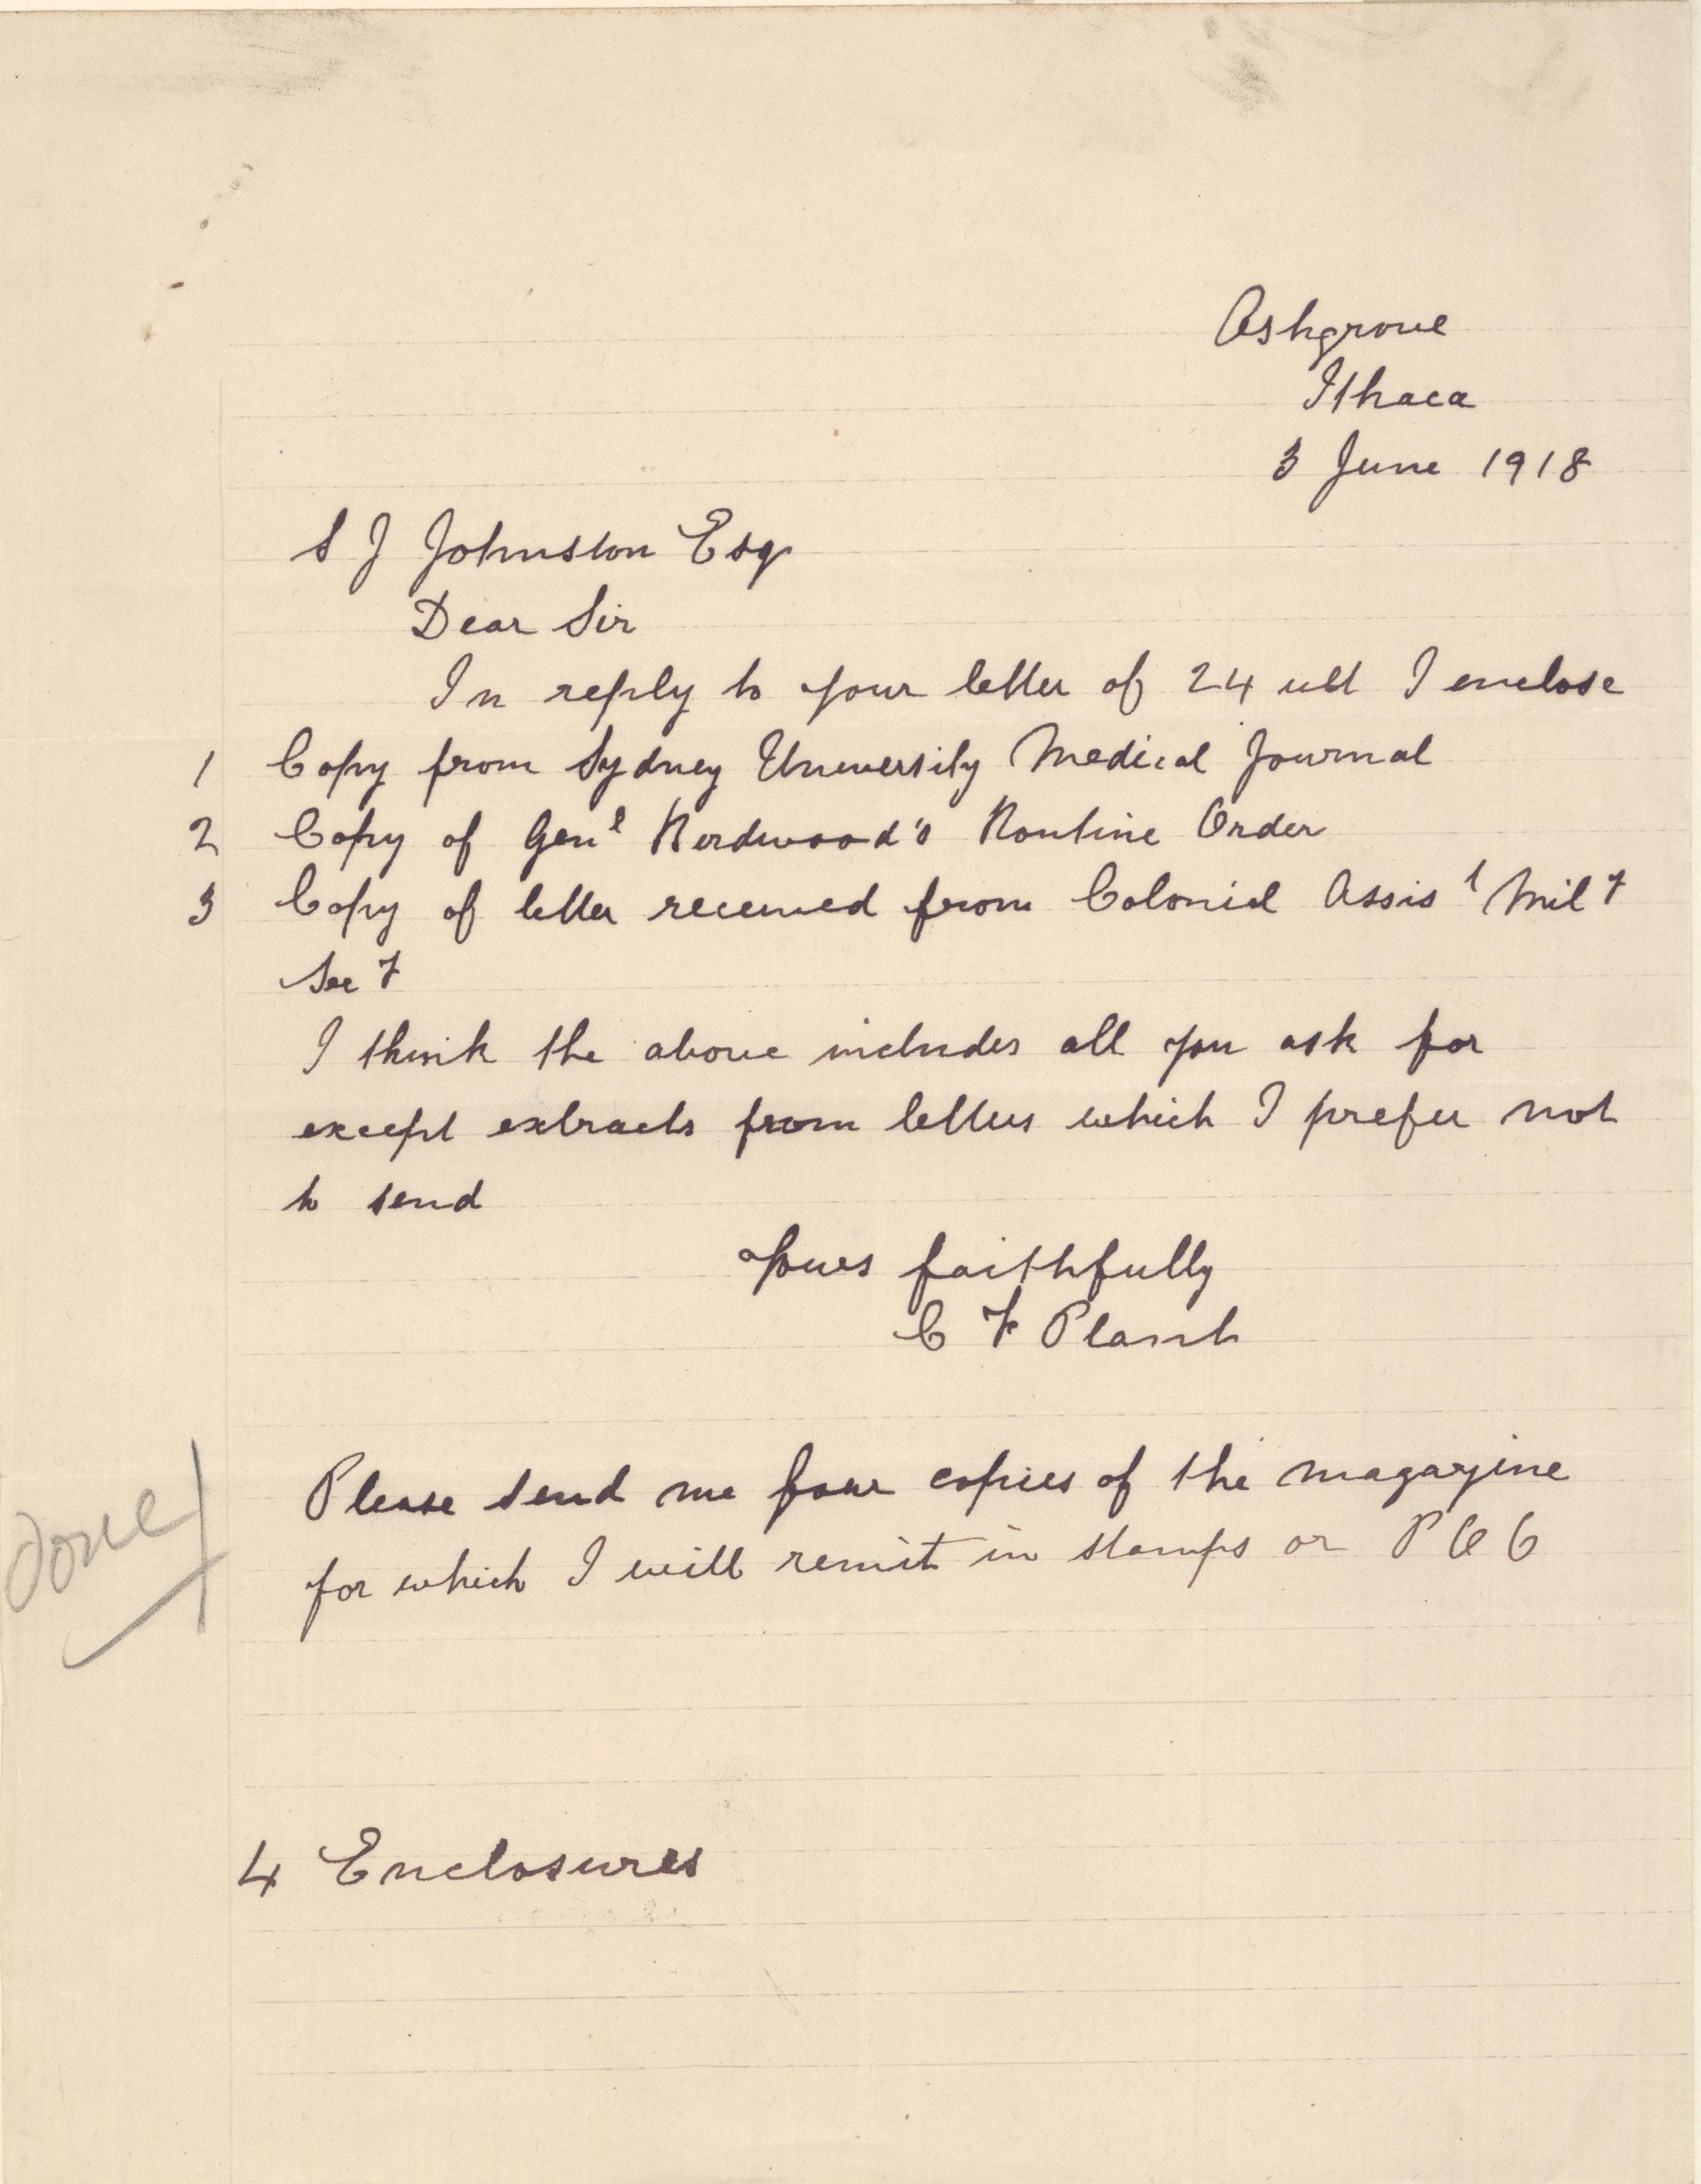 Ashgrove
Ithaca
3 June 1918
S J Johnston Esq
Dear Sir
In reply to your letter of 24 ult I enclose
1 Copy from Sydney University Medical Journal
2 Copy of Genl Birdwood's Routine Order
3 Copy of letter received from Colonial Assist Mily
Secy
I think the above includes all you ask for
except extracts from letters which I prefer not
to send
Yours faithfully
C F Plant
Please send me four copies of the magazine
for which I will remit in stamps or P O O
Done
4 Enclosures